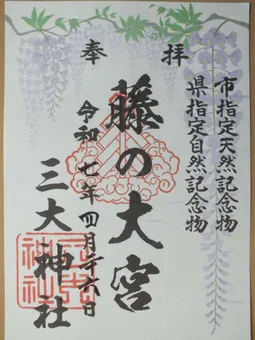 奉拝
市指定天然記念物
県指定自然記念物
藤の大宮
令和七年四月廿六日
三大神社